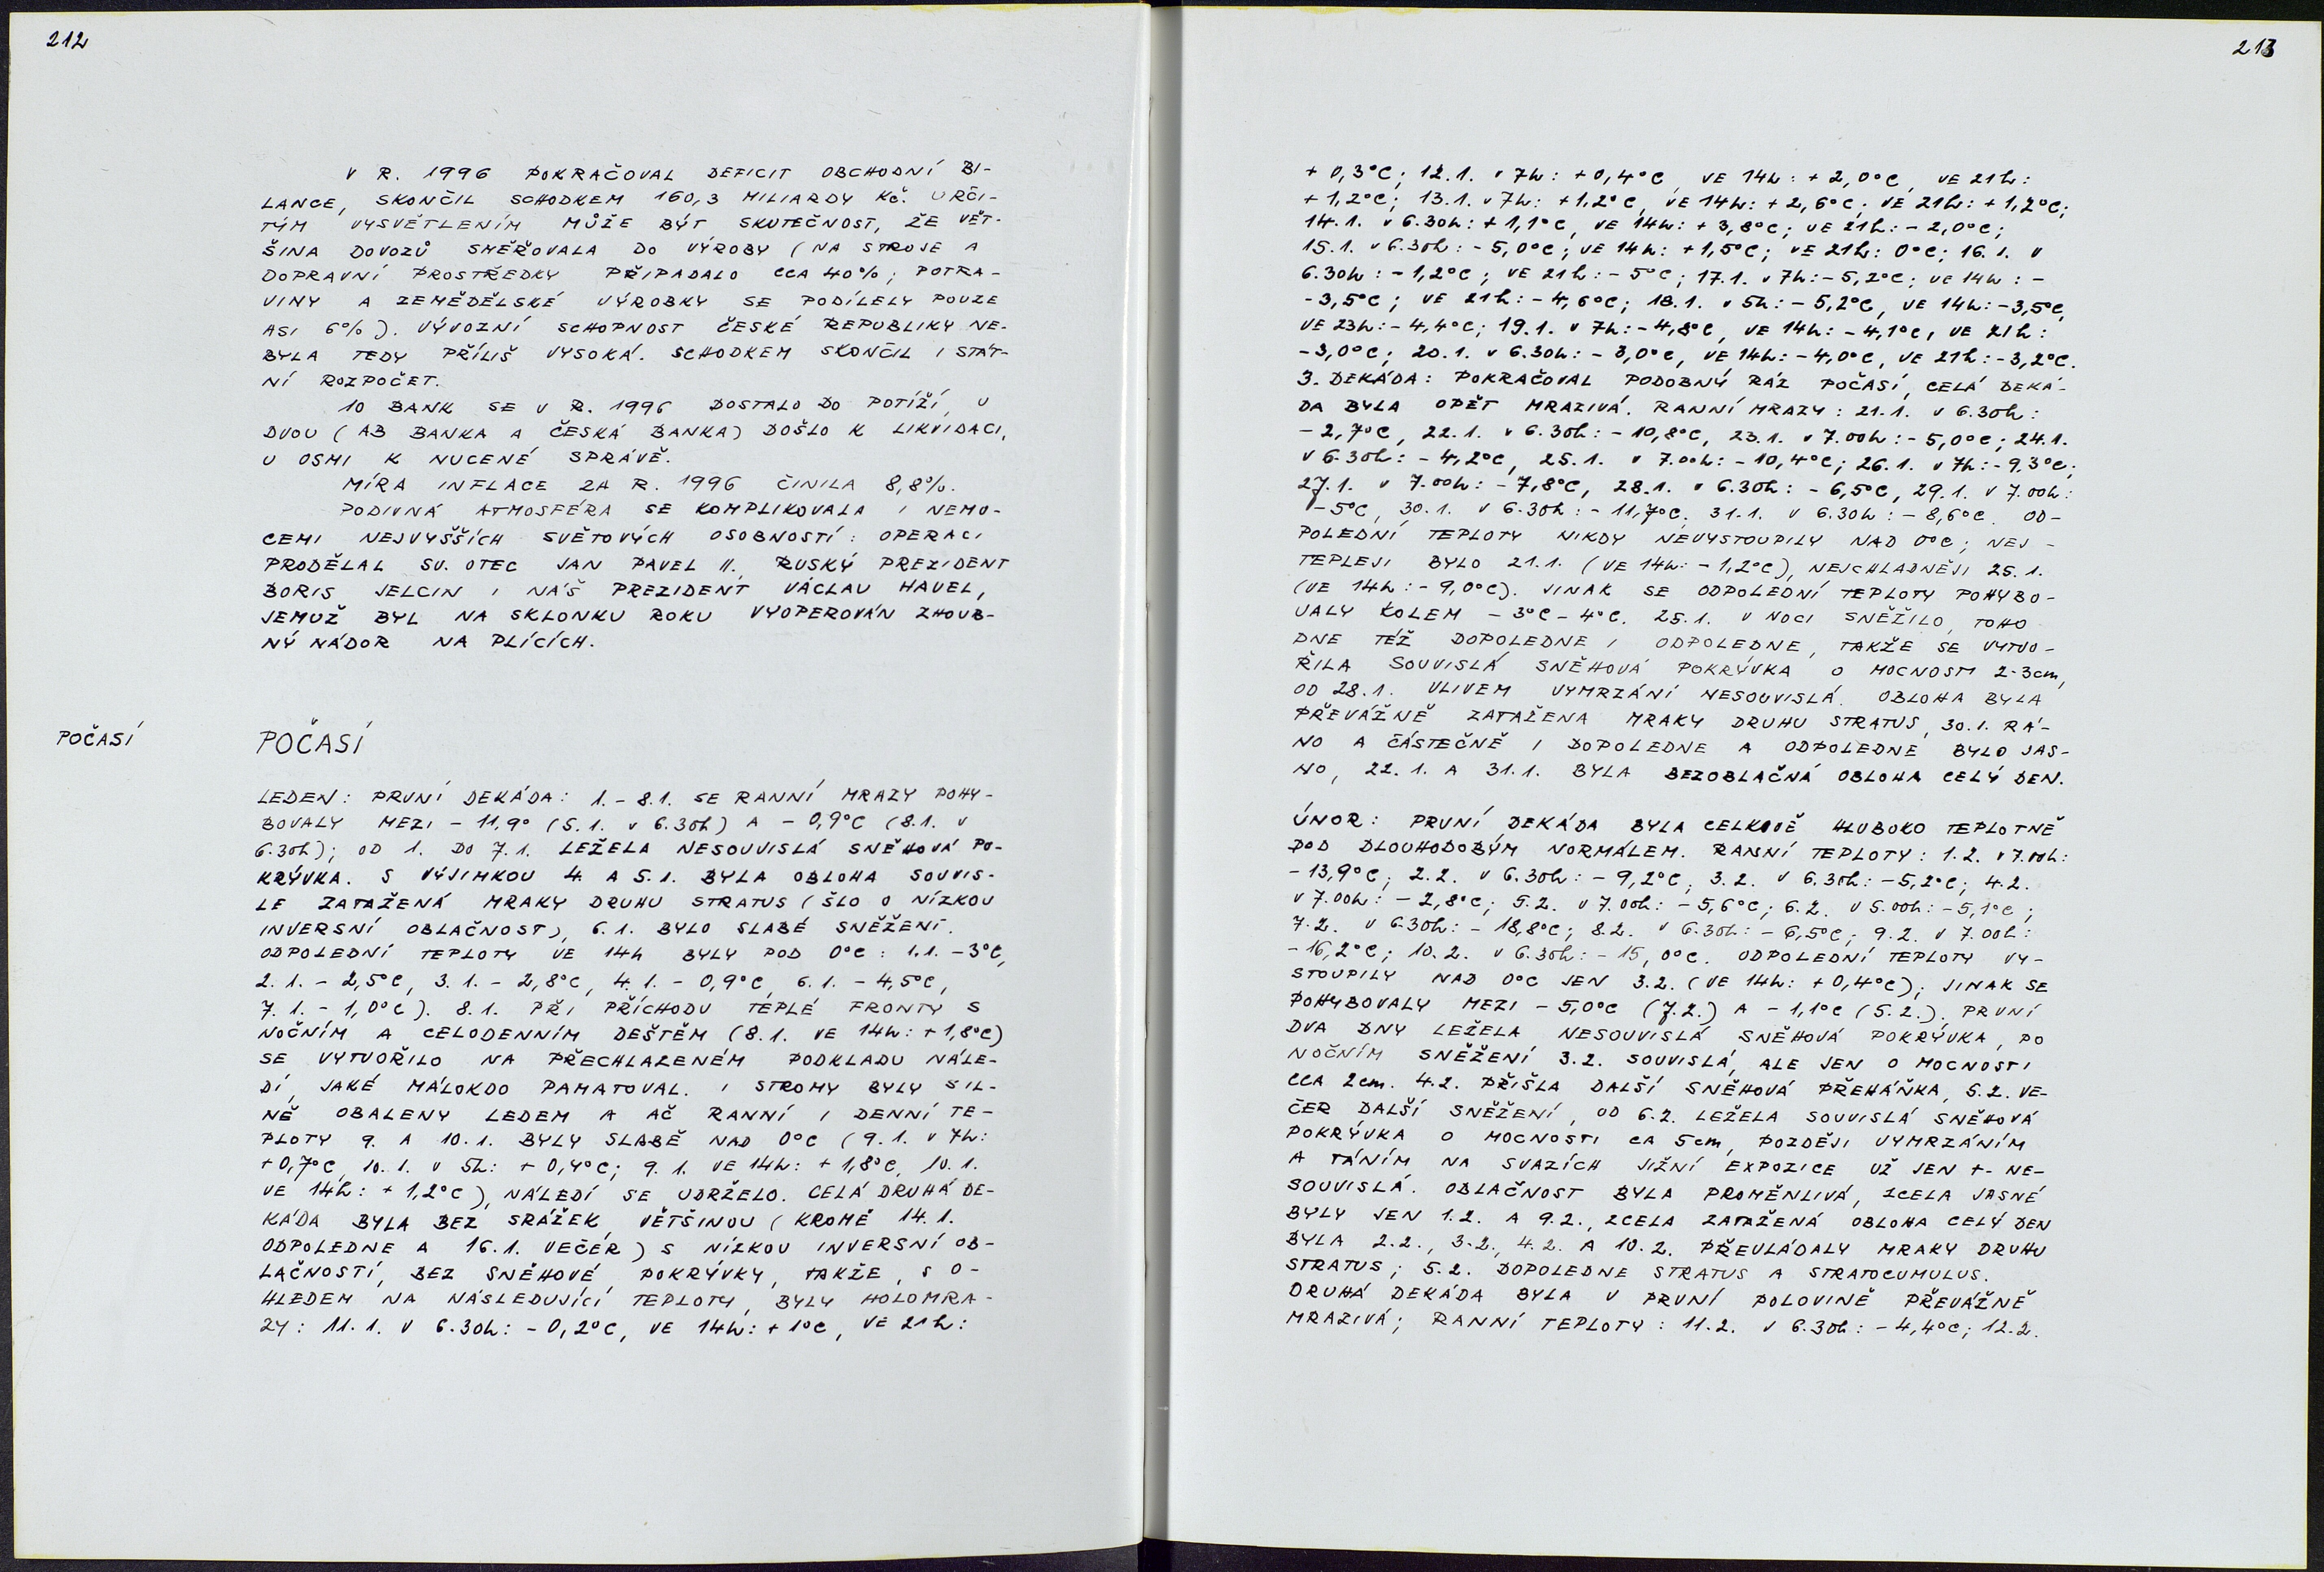 212
V R. 1996 POKRAČOVAL DEFICIT OBCHODNÍ BI-
LANCE, SKONČIL SCHODKEM 160,3 MILIARDY KČ. URČI-
TÝM VYSVĚTLENÍM MŮŽE BÝT SKUTEČNOST, ŽE VĚT-
ŠINA DOVOZŮ SMĚŘOVALA DO VÝROBY (NA STROJE A
DOPRAVNÍ PROSTŘEDKY PŘIPADALO CCA 40%; POTRA-
VINY A ZEMĚDĚLSKÉ VÝROBKY SE PODÍLELY POUZE
ASI 6%). VÝVOZNÍ SCHOPNOST ČESKÉ REPUBLIKY NE-
BYLA TEDY PŘÍLIŠ VYSOKÁ. SCHODKEM SKONČIL I STÁT-
NÍ ROZPOČET.
10 BANK SE V R. 1996 DOSTALO DO POTÍŽÍ, U
DVOU (AB BANKA A ČESKÁ BANKA) DOŠLO K LIKVIDACI,
U OSMI K NUCENÉ SPRÁVĚ.
MÍRA INFLACE ZA R. 1996 ČINILA 8,8%.
PODIVNÁ ATMOSFÉRA SE KOMPLIKOVALA I NEMO-
CEMI NEJVYŠŠÍCH SVĚTOVÝCH OSOBNOSTÍ: OPERACI
PRODĚLAL SV. OTEC JAN PAVEL II., RUSKÝ PREZIDENT
BORIS JELCIN I NÁŠ PREZIDENT VÁCLAV HAVEL,
JEMUŽ BYL NA SKLONKU ROKU VYOPEROVÁN ZHOUB-
NÝ NÁDOR NA PLÍCÍCH.
POČASÍ
POČASÍ
LEDEN: PRVNÍ DEKÁDA: 1.-8.1. SE RANNÍ MRAZY POHY-
BOVALY MEZI -11,9° (5.1. v 6.30h) A -0,9°C (8.1. v
6.30h); OD 1. DO 7.1. LEŽELA NESOUVISLÁ SNĚHOVÁ PO-
KRÝVKA. S VÝJIMKOU 4. A 5.1. BYLA OBLOHA SOUVIS-
LE ZATAŽENÁ MRAKY DRUHU STRATUS (ŠLO O NÍZKOU
INVERSNÍ OBLAČNOST), 6.1. BYLO SLABÉ SNĚŽENÍ.
ODPOLEDNÍ TEPLOTY VE 14h BYLY POD 0°C: 1.1. -3°C,
2.1. -2,5°C, 3.1. -2,8°C, 4.1. -0,9°C, 6.1. -4,5°C,
7.1. -1,0°C). 8.1. PŘI PŘÍCHODU TEPLÉ FRONTY S
NOČNÍM A CELODENNÍM DEŠTĚM (8.1. VE 14h: +1,8°C)
SE VYTVOŘILO NA PŘECHLAZENÉM PODKLADU NÁLE-
DÍ, JAKÉ MÁLOKDO PAMATOVAL. I STROMY BYLY SIL-
NĚ OBALENY LEDEM A AČ RANNÍ I DENNÍ TE-
PLOTY 9. A 10.1. BYLY SLABĚ NAD 0°C (9.1. v 7h:
+0,7°C, 10.1. v 5h: +0,4°C; 9.1. VE 14h: +1,8°C, 10.1.
VE 14h: +1,2°C), NÁLEDÍ SE UDRŽELO. CELÁ DRUHÁ DE-
KÁDA BYLA BEZ SRÁŽEK, VĚTŠINOU (KROMĚ 14.1.
ODPOLEDNE A 16.1. VEČER) S NÍZKOU INVERSNÍ OB-
LAČNOSTÍ, BEZ SNĚHOVÉ POKRÝVKY, TAKŽE, S O-
HLEDEM NA NÁSLEDUJÍCÍ TEPLOTY, BYLY HOLOMRA-
ZY: 11.1. v 6.30h: -0,2°C, VE 14h: +1°C, VE 21h:
213
+0,3°C; 12.1. v 7h: +0,4°C, VE 14h: +2,0°C, VE 21h:
+1,2°C; 13.1. v 7h: +1,2°C, VE 14h: +2,6°C; VE 21h: +1,2°C;
14.1. v 6.30h: +1,1°C, VE 14h: +3,8°C; VE 21h: -2,0°C;
15.1. v 6.30h: -5,0°C; VE 14h: +1,5°C; VE 21h: 0°C; 16.1. v
6.30h: -1,2°C; VE 21h: -5°C; 17.1. v 7h: -5,2°C; VE 14h: -
-3,5°C; VE 21h: -4,6°C; 18.1. v 5h: -5,2°C, VE 14h: -3,5°C,
VE 23h: -4,4°C; 19.1. v 7h: -4,8°C, VE 14h: -4,1°C, VE 21h:
-3,0°C; 20.1. v 6.30h: -3,0°C, VE 14h: -4,0°C, VE 21h: -3,2°C.
3. DEKÁDA: POKRAČOVAL PODOBNÝ RÁZ POČASÍ, CELÁ DEKÁ-
DA BYLA OPĚT MRAZIVÁ. RANNÍ MRAZY: 21.1. v 6.30h:
-2,7°C, 22.1. v 6.30h: -10,8°C, 23.1. v 7.00h: -5,0°C; 24.1.
v 6.30h: -4,2°C, 25.1. v 7.00h: -10,4°C; 26.1. v 7h: -9.3°C;
27.1. v 7.00h: -7,8°C, 28.1. v 6.30h: -6,5°C, 29.1. v 7.00h:
-5°C, 30.1. v 6.30h: -11,7°C, 31.1. v 6.30h: -8,6°C. OD-
POLEDNÍ TEPLOTY NIKDY NEVYSTOUPILY NAD 0°C; NEJ-
TEPLEJI BYLO 21.1. (VE 14h: -1,2°C), NEJCHLADNĚJI 25.1.
(VE 14h: -9,0°C). JINAK SE ODPOLEDNÍ TEPLOTY POHYBO-
VALY KOLEM -3°C-4°C. 25.1. V NOCI SNĚŽILO, TOHO
DNE TÉŽ DOPOLEDNE I ODPOLEDNE, TAKŽE SE VYTVO-
ŘILA SOUVISLÁ SNĚHOVÁ POKRÝVKA O MOCNOSTI 2-3cm,
OD 28.1. VLIVEM VYMRZÁNÍ NESOUVISLÁ. OBLOHA BYLA
PŘEVÁŽNĚ ZATAŽENA MRAKY DRUHU STRATUS, 30.1. RÁ-
NO A ČÁSTEČNĚ I DOPOLEDNE A ODPOLEDNE BYLO JAS-
NO, 22.1. A 31.1. BYLA BEZOBLAČNÁ OBLOHA CELÝ DEN.
ÚNOR: PRVNÍ DEKÁDA BYLA CELKOVĚ HLUBOKO TEPLOTNĚ
POD DLOUHODOBÝM NORMÁLEM. RANNÍ TEPLOTY: 1.2. v 7.00h:
-13,9°C; 2.2. v 6.30h: -9,2°C, 3.2. v 6.30h: -5,2°C; 4.2.
v 7.00h: -2,8°C; 5.2. v 7.00h: -5,6°C; 6.2. v 5.00h: -5,1°C;
7.2. v 6.30h: -18,8°C; 8.2. v 6.30h: -6,5°C; 9.2. v 7.00h:
-16,2°C; 10.2. v 6.30h: -15,0°C. ODPOLEDNÍ TEPLOTY VY-
STOUPILY NAD 0°C JEN 3.2. (VE 14h: +0,4°C); JINAK SE
POHYBOVALY MEZI -5,0°C (7.2.) A -1,1°C (5.2.). PRVNÍ
DVA DNY LEŽELA NESOUVISLÁ SNĚHOVÁ POKRÝVKA, PO
NOČNÍM SNĚŽENÍ 3.2. SOUVISLÁ, ALE JEN O MOCNOSTI
CCA 2cm. 4.2. PŘIŠLA DALŠÍ SNĚHOVÁ PŘEHÁŇKA, 5.2. VE-
ČER DALŠÍ SNĚŽENÍ, OD 6.2. LEŽELA SOUVISLÁ SNĚHOVÁ
POKRÝVKA O MOCNOSTI CA 5cm, POZDĚJI VYMRZÁNÍM
A TÁNÍM NA SVAZÍCH JIŽNÍ EXPOZICE UŽ JEN +- NE-
SOUVISLÁ. OBLAČNOST BYLA PROMĚNLIVÁ, ZCELA JASNÉ
BYLY JEN 1.2. A 9.2., ZCELA ZATAŽENÁ OBLOHA CELÝ DEN
BYLA 2.2., 3.2., 4.2. A 10.2. PŘEVLÁDALY MRAKY DRUHU
STRATUS; 5.2. DOPOLEDNE STRATUS A STRATOCUMULUS.
DRUHÁ DEKÁDA BYLA V PRVNÍ POLOVINĚ PŘEVÁŽNĚ
MRAZIVÁ; RANNÍ TEPLOTY: 11.2. v 6.30h: -4,4°C; 12.2.